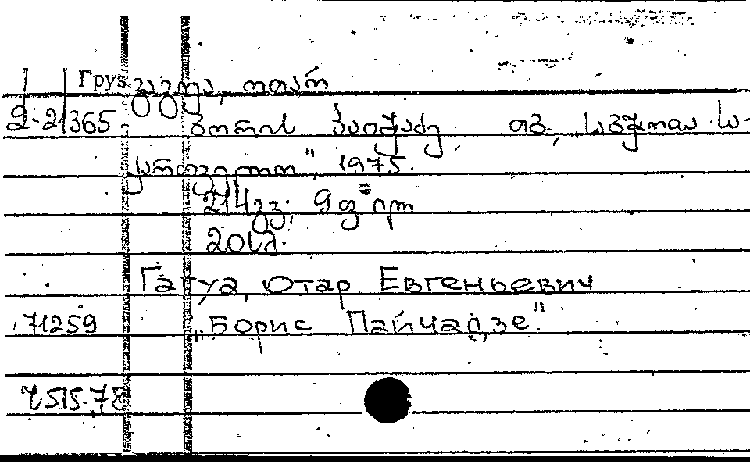 Груз. გაგუა, ოთარ
2-21365. ბორის პაიჭაძე. თბ., „საბჭოთა სა-
ქართველო", 1975.
214გვ;
20სმ.
Гагуа, Отар Евгеньевич
71259 „Борис Пайчадзе."
7515.78